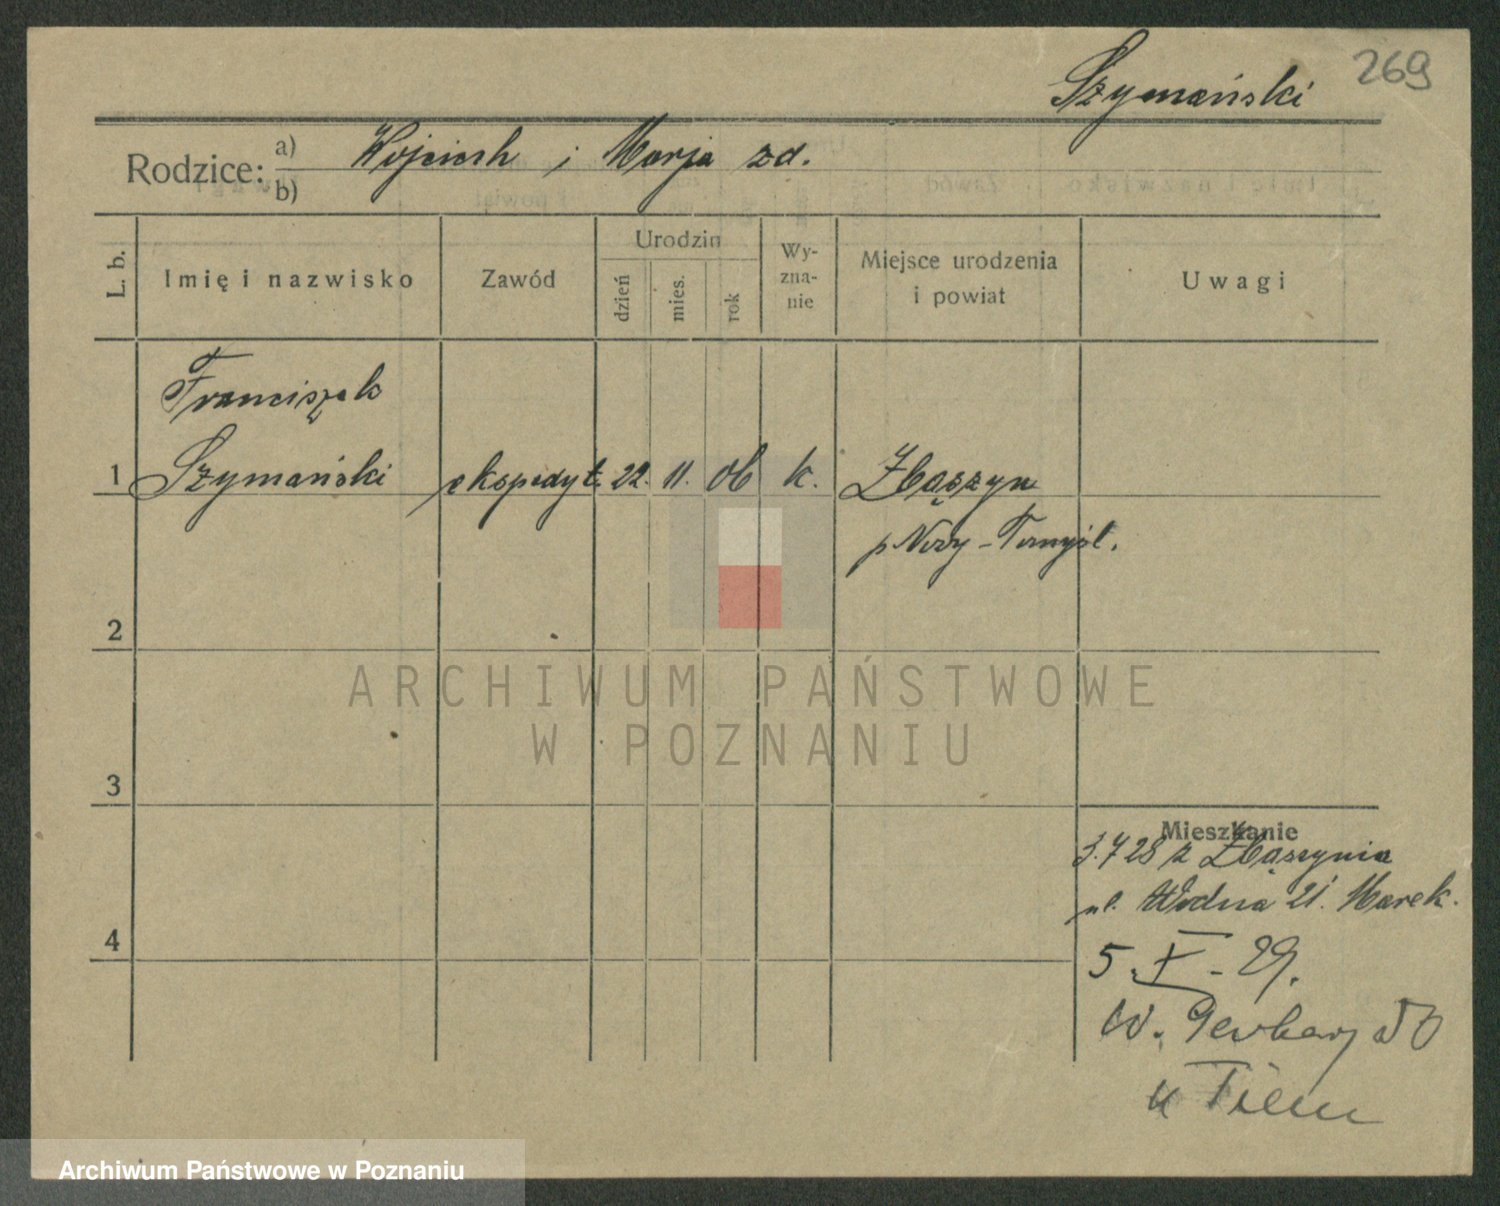 Szymański
269
Rodzice:
a) Wojciech i Marja zd.
b)
L. b.
Imię i nazwisko
Zawód
Urodzin
dzień
mies.
rok
Wy-
zna-
nie
Miejsce urodzenia
i powiat
Uwagi
Franciszek
1 Szymański ekspedyt. 22. 11. 06 k. Zbąszyn
p Nowy-Tomyśl.
2
ARCHIWUM PAŃSTWOWE
W POZNANIU
3
Mieszkanie
3.7 28 z Zbąszynia
ul. Wodna 21. Marek.
4
5. X - 29.
W. Garbary
u
Archiwum Państwowe w Poznaniu